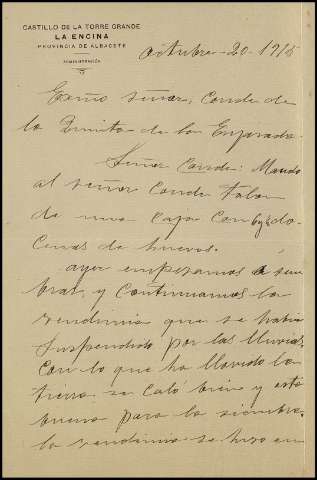 CASTILLO DE LA TORRE GRANDE
LA ENCINA
PROVINCIA DE ALBACETE
ADMINISTRACIÓN
octubre - 20 - 1915
Exmo señor, Conde de
la Quinta de la Enjarada.
Señor Conde: Mando
al señor Conde talon
de una caja con 6 y ½ do-
cenas de huevos.
ayer empezamos á sem
brar, y continuamos la
vendimia que se habia
suspendido por las lluvias,
con lo que ha llovido la
tierra se caló bien y está
buena para la siembra,
la vendimia se hizo en